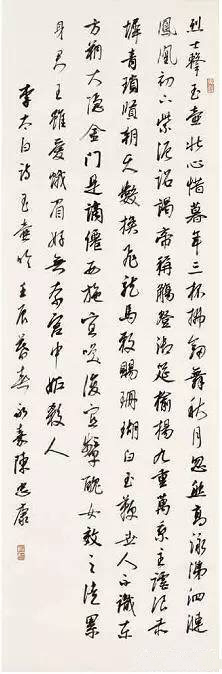 烈士擊玉壺壯心惜暮年三杯拂劍舞秋月忽然高詠涕泗漣
鳳凰初下紫泥詔謁帝稱觴登御筵揄揚九重萬乘主謔浪赤
墀青瑣賢朝天數換飛龍馬敕賜珊瑚白玉鞭世人不識東
方朔大隱金門是謫僊西施宜笑復宜顰醜女效之徒累
身君王雖愛蛾眉好無奈宮中妒殺人
李太白詩玉壺吟壬辰暮春永嘉陳忠康